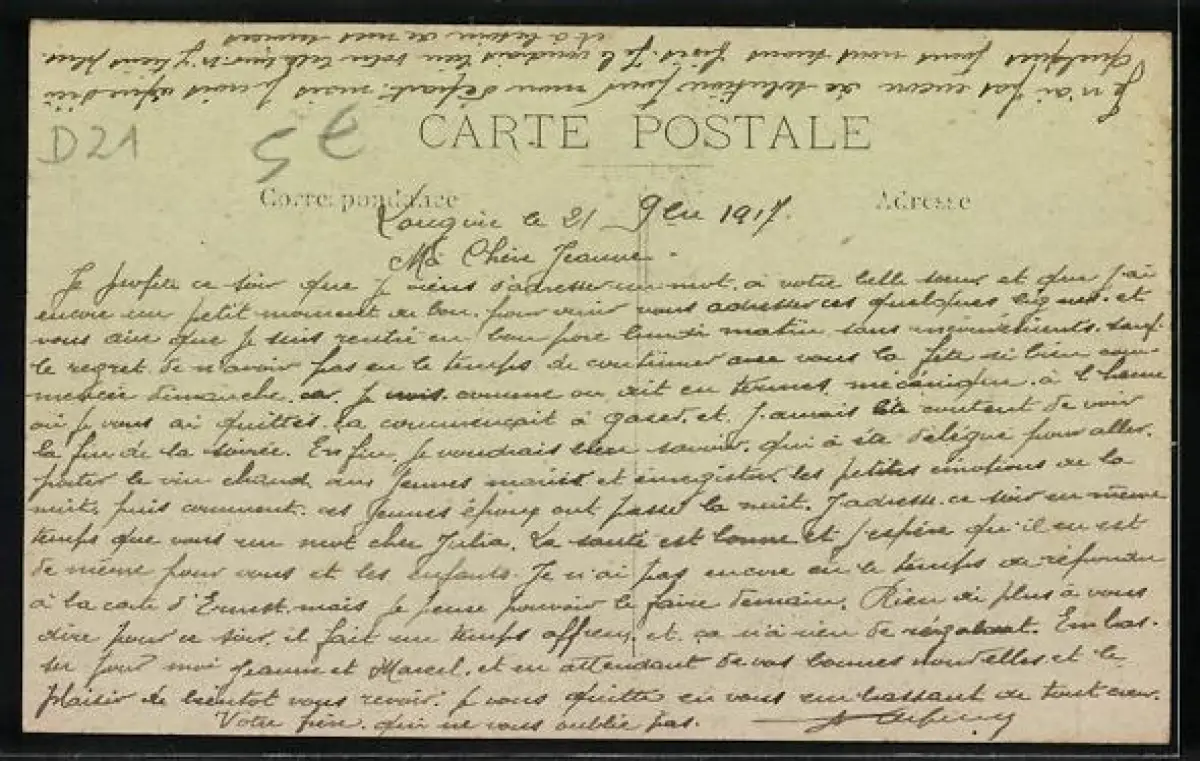 Je n'ai pas encore de solution pour mon départ. mais je crois
quelques jours nous serons fixés. Je le voudrais bien votre belle sœur n'y tiens plus.
et à besoin de mes services
D21
5€
CARTE POSTALE
Correspondance
Adresse
le 21 9bre 1917.
Ma Chère Jeanne.
Je profite ce soir que je viens d'adresser un mot. à votre belle sœur et que j'ai
encore un petit moment de bon. pour venir vous adresser ces quelques lignes. et
vous dire que je suis rentré en bon port lundi matin sans inconvénients. sauf.
le regret de n'avoir pas eu le temps de continuer avec vous la fête si bien com-
mencée dimanche. car. je crois. comme on dit en termes. mécanique. à l'heure
où je vous ai quittés. ça commençait à gazer. et. j'aurais été content de voir
la fin de la soirée. Enfin, je voudrais bien savoir. qui à été délégué pour aller.
porter le vin chaud. aux jeunes mariés et enregistrer. les petites émotions de la
nuit. puis comment. ces jeunes époux ont passé la nuit. J'adresse. ce soir en même
temps que vous un mot chez Julia. La santé est bonne et j'espère qu'il en est
de même pour vous et les enfants. Je n'ai pas encore eu le temps de répondre
à la carte d'Ernest. mais je pense pouvoir le faire demain. Rien de plus à vous
dire pour ce soir. il fait un temps affreux. et. ça n'a rien de régalant. Embras-
ser pour moi Jeanne et Marcel. et en attendant de vos bonnes nouvelles et le
plaisir de bientot vous revoir. je vous quitte en vous embrassant de tout cœur.
Votre frère. qui ne vous oublie pas.